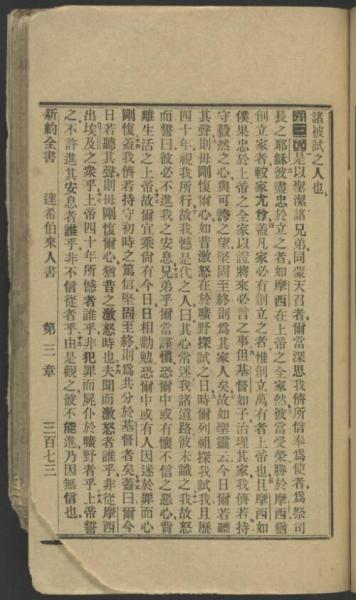 諸被試之人也
第三章是以聖潔諸兄弟同蒙天召者爾當深思我儕所信奉為使者為祭司
長之耶穌彼盡忠於立之者如摩西在上帝之全家然彼當受榮勝於摩西猶
創立家者較家尤尊蓋凡家必有創立之者惟創立萬有者上帝也且摩西如
僕果忠於上帝之全家以證將來必言之事但基督如子治理其家我儕若持
守毅然之心與可誇之望堅固至終則為其家人矣故如聖靈云今日爾若聽
其聲則毋剛愎爾心如昔激怒在於曠野探試之日時爾列祖探我試我且歷
四十年視我所行故我憾是代之人曰其心常迷我諸道路彼未識之我故怒
而誓曰彼必不進我之安息兄弟乎爾當謹慎恐爾中或有懷不信之惡心背
離生活之上帝故爾宜乘尚有今日日相勸勉恐爾中或有人因迷於罪而心
剛愎蓋我儕若持守初時之篤信堅固至終則為共分於基督者矣蓋曰爾今
日若聽其聲則毋剛愎爾心猶昔之激怒時也夫聞而激怒者誰乎非從摩西
出埃及之衆乎上帝四十年所憾者誰乎非犯罪而屍仆於曠野者乎上帝誓
之不許進其安息者誰乎非不信從者乎由是觀之彼不能進乃因無信也
新約全書　達希伯來人書　第三章　三百七三